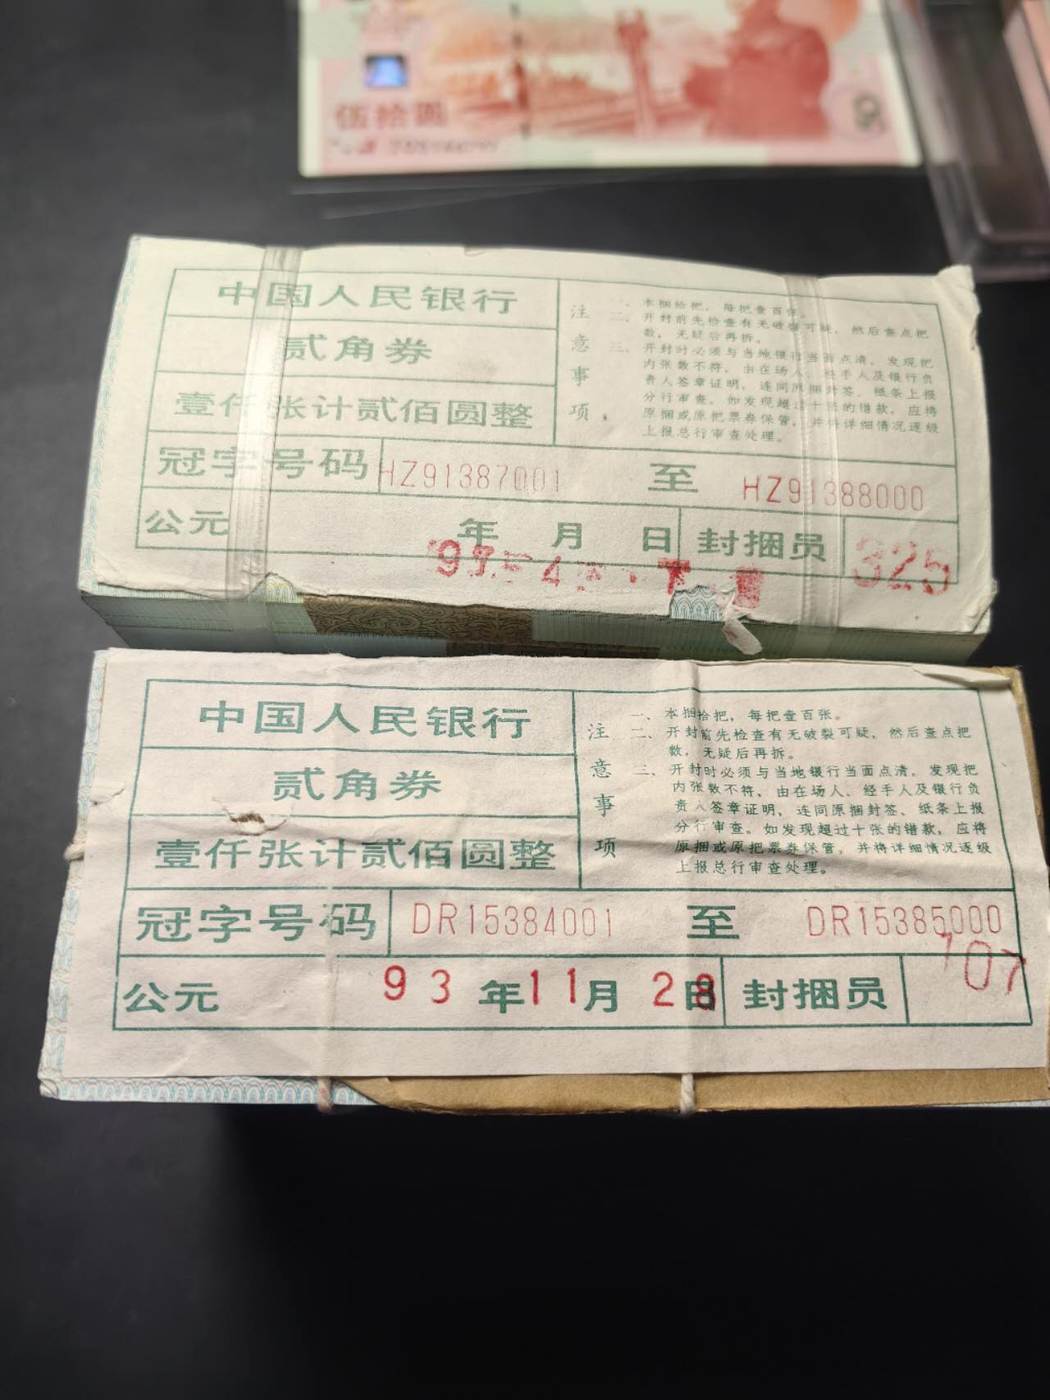 伍拾圆
中国人民银行
贰角券
壹仟张计贰佰圆整
注意事项
一、本捆拾把，每把壹百张。
二、开封前先检查有无破裂可疑，然后查点把
数，无疑后再拆。
三、开封时必须与当地银行当面点清，发现把
内张数不符，由在场人、经手人及银行负
责人签章证明，连同原捆封签、纸条上报
分行审查。如发现超过十张的错款，应将
原捆或原把票券保管，并将详细情况逐级
上报总行审查处理。
冠字号码 HZ91387001 至 HZ91388000
公元 年 月 日 封捆员 325
中国人民银行
贰角券
壹仟张计贰佰圆整
注意事项
一、本捆拾把，每把壹百张。
二、开封前先检查有无破裂可疑，然后查点把
数，无疑后再拆。
三、开封时必须与当地银行当面点清，发现把
内张数不符，由在场人、经手人及银行负
责人签章证明，连同原捆封签、纸条上报
分行审查。如发现超过十张的错款，应将
原捆或原把票券保管，并将详细情况逐级
上报总行审查处理。
冠字号码 DR15384001 至 DR15385000
公元 93 年 11 月 28 日 封捆员 107